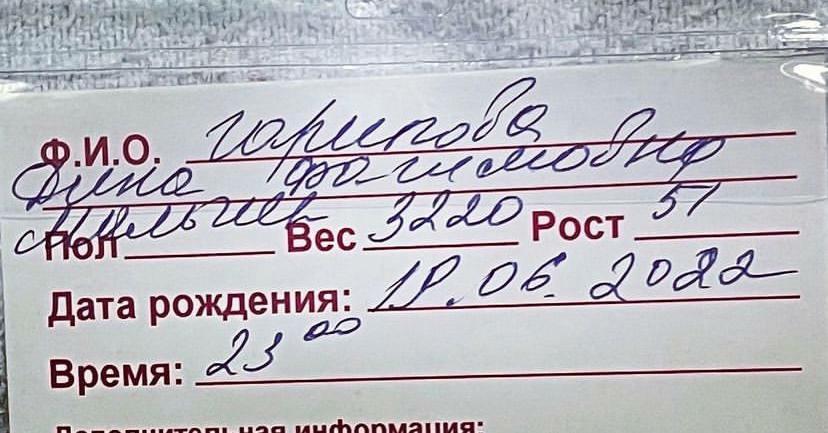 Ф.И.О. Гарипова
Дина Фагимовна
мальчик
Пол Вес 3220 Рост 51
Дата рождения: 19.06.2022
Время: 23 00
Дополнительная информация: